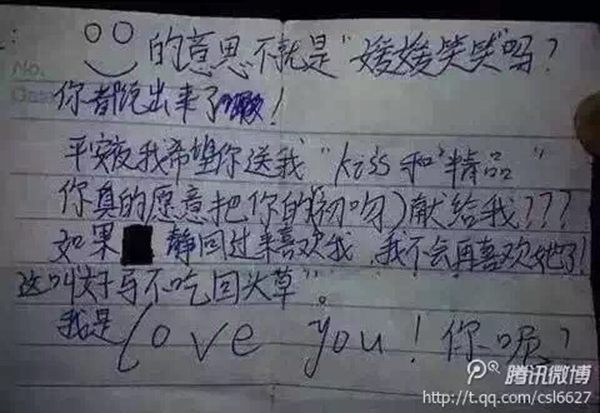 的意思不就是"媛媛笑笑"吗?
你都说出来了啊!
平安夜我希望你送我"kiss和"精品"
你真的愿意把你的(初吻)献给我???
如果 静回过来喜欢我,我不会再喜欢她了!
这叫"好马不吃回头草"。
我是love you!你呢?
腾讯微博
http://t.qq.com/csl6627
No.
Date